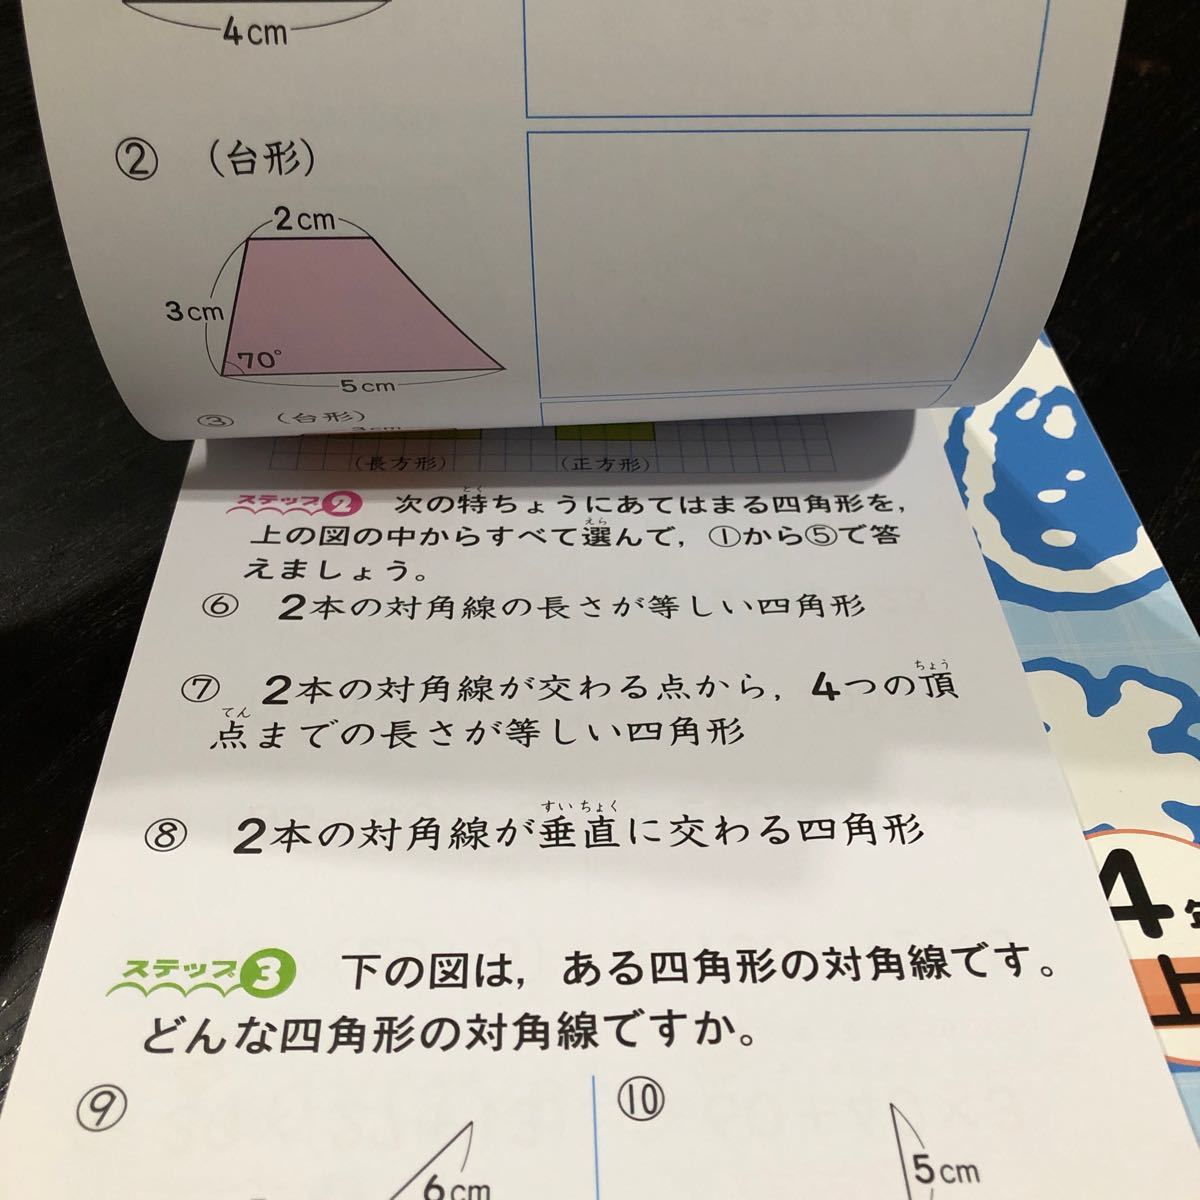 4cm
② (台形)
2cm
3cm
70°
5cm
③ (台形)
3cm
(長方形) (正方形)
ステップ2 次の特ちょうにあてはまる四角形を,
とく
上の図の中からすべて選んで, ①から⑤で答
えら
えましょう。
⑥ 2本の対角線の長さが等しい四角形
⑦ 2本の対角線が交わる点から, 4つの頂
ちょう
点までの長さが等しい四角形
てん
⑧ 2本の対角線が垂直に交わる四角形
すいちょく
ステップ3 下の図は, ある四角形の対角線です。
どんな四角形の対角線ですか。
⑨
6cm
⑩
5cm
4
上